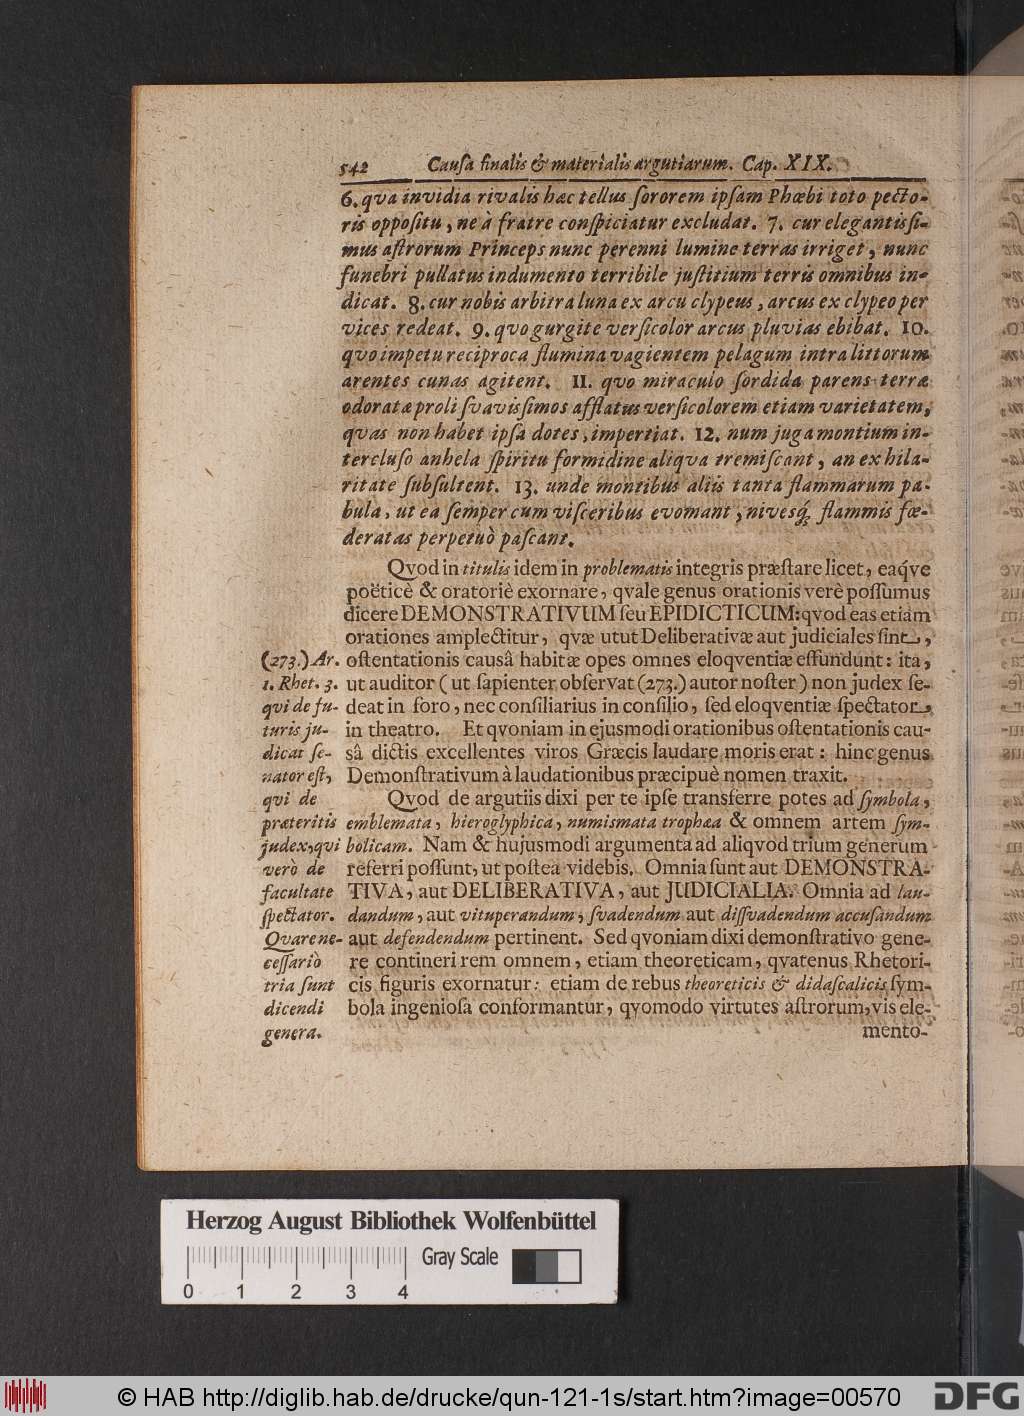 542 Cauſa finalis & materialis argutiarum. Cap. XIX.
6. qva invidia rivalis hæc tellus ſororem ipſam Phœbi toto pecto-
ris oppoſitu, ne à fratre conſpiciatur excludat. 7. cur elegantisſi-
mus aſtrorum Princeps nunc perenni lumine terras irriget, nunc
funebri pullatus indumento terribile juſtitium terris omnibus in-
dicat. 8. cur nobis arbitra luna ex arcu clypeus, arcus ex clypeo per
vices redeat. 9. qvo gurgite verſicolor arcus pluvias ebibat. 10.
qvo impetu reciproca flumina vagientem pelagum intra littorum
arentes cunas agitent. 11. qvo miraculo ſordida parens terræ
odoratæ proli ſvavisſimos afflatus verſicolorem etiam varietatem,
qvas non habet ipſa dotes, impertiat. 12. num juga montium in-
tercluſo anhela ſpiritu formidine aliqva tremiſcant, an ex hila-
ritate ſubſultent. 13. unde montibus aliis tanta flammarum pa-
bula, ut ea ſemper cum viſceribus evomant, nivesq́; flammis fœ-
deratas perpetuò paſcant.
Qvod in titulis idem in problematis integris præſtare licet, eaq́ve
poëticè & oratoriè exornare, qvale genus orationis verè poſſumus
dicere DEMONSTRATIVUM ſeu EPIDICTICUM: qvod eas etiam
orationes amplectitur, qvæ utut Deliberativæ aut judiciales ſint,
oſtentationis causâ habitæ opes omnes eloqventiæ effundunt: ita,
ut auditor (ut ſapienter obſervat (273.) autor noſter) non judex ſe-
deat in foro, nec conſiliarius in conſilio, ſed eloqventiæ ſpectator,
in theatro. Et qvoniam in ejusmodi orationibus oſtentationis cau-
sâ dictis excellentes viros Græcis laudare moris erat: hinc genus
Demonſtrativum à laudationibus præcipuè nomen traxit.
Qvod de argutiis dixi per te ipſe transferre potes ad ſymbola,
emblemata, hieroglyphica, numismata trophæa & omnem artem ſym-
bolicam. Nam & hujusmodi argumenta ad aliqvod trium generum
referri poſſunt, ut poſtea videbis. Omnia ſunt aut DEMONSTRA-
TIVA, aut DELIBERATIVA, aut JUDICIALIA. Omnia ad lau-
dandum, aut vituperandum, ſvadendum aut diſſvadendum accuſandum
aut defendendum pertinent. Sed qvoniam dixi demonſtrativo gene-
re contineri rem omnem, etiam theoreticam, qvatenus Rhetori-
cis figuris exornatur: etiam de rebus theoreticis & didaſcalicis ſym-
bola ingenioſa conformantur, qvomodo virtutes aſtrorum, vis ele-
mento-
(273.) Ar.
1. Rhet. 3.
qvi de fu-
turis ju-
dicat ſe-
nator eſt,
qvi de
præteritis
judex, qvi
verò de
facultate
ſpectator.
Qvare ne-
ceſſariò
tria ſunt
dicendi
genera.
Herzog August Bibliothek Wolfenbüttel
Gray Scale
0 1 2 3 4
© HAB http://diglib.hab.de/drucke/qun-121-1s/start.htm?image=00570
DFG